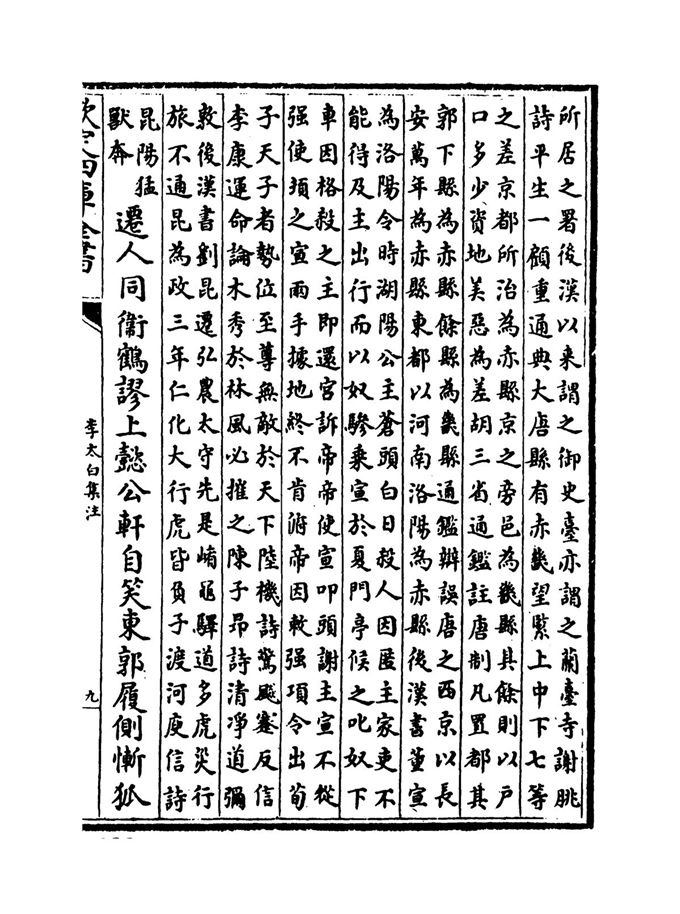 所居之署後漢以来謂之御史臺亦謂之蘭臺寺謝朓
詩平生一顧重通典大唐縣有赤畿望緊上中下七等
之差京都所治為赤縣京之旁邑為畿縣其餘則以户
口多少資地美惡為差胡三省通鑑註唐制凡置都其
郭下縣為赤縣餘縣為畿縣通鑑辨誤唐之西京以長
安萬年為赤縣東都以河南洛陽為赤縣後漢書董宣
為洛陽令時湖陽公主蒼頭白日殺人因匿主家吏不
能得及主出行而以奴驂乗宣於夏門亭候之叱奴下
車因格殺之主即還宮訴帝帝使宣叩頭謝主宣不從
强使頓之宣兩手據地終不肯俯帝因敕强項令出荀
子天子者勢位至尊無敵於天下陸機詩驚飈蹇反信
李康運命論木秀於林風必摧之陳子昂詩清凈道彌
敦後漢書劉昆遷弘農太守先是崤黽驛道多虎災行
旅不通昆為政三年仁化大行虎皆負子渡河庾信詩
昆陽猛
獸奔
遷人同衞鶴謬上懿公軒自笑東郭履側慚狐
欽定四庫全書
李太白集注
九